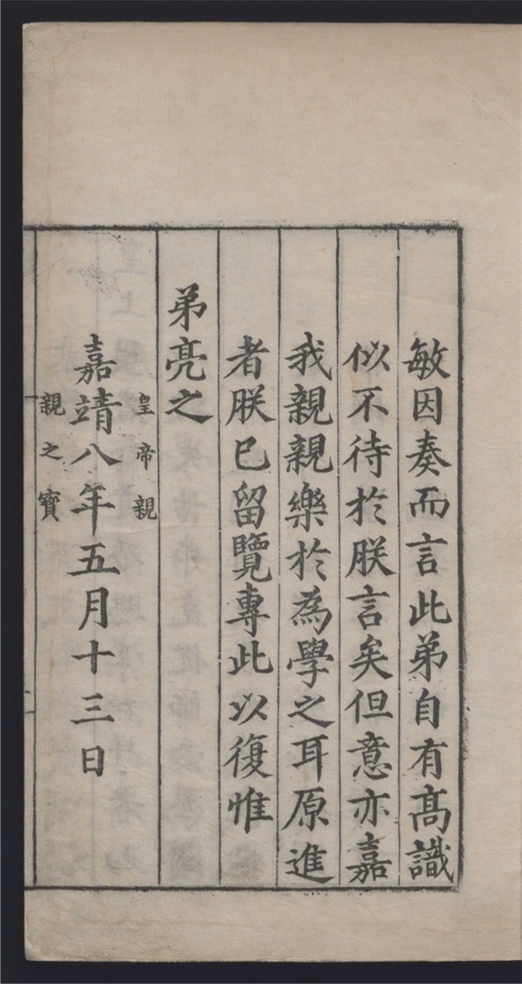 敏因奏而言此弟自有高識
似不待於朕言矣但意亦嘉
我親親樂於為學之耳原進
者朕已留覽專此以復惟
弟亮之
皇帝親
嘉靖八年五月十三日
親之寳